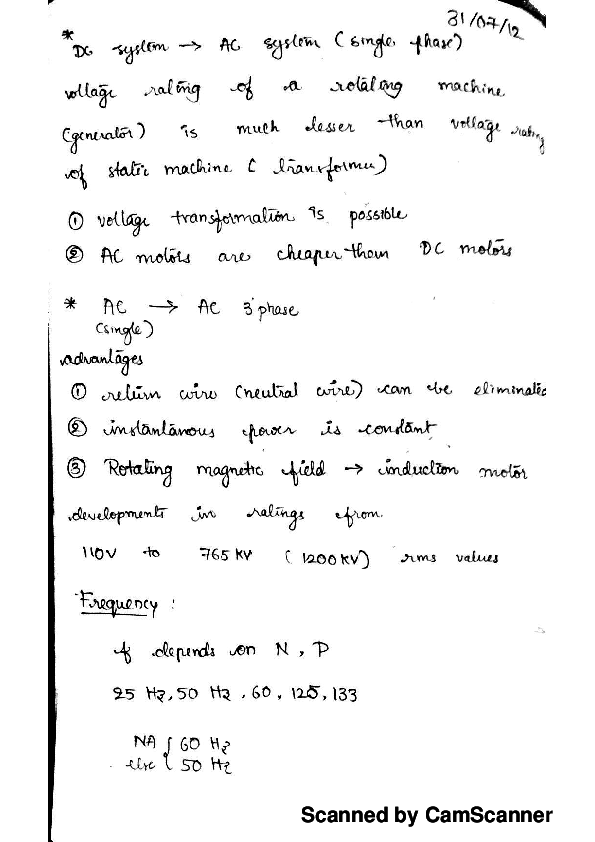 31/07/12
* DC system → AC system (single phase)
voltage rating of a rotating machine
(generator) is much lesser than voltage rating
of static machine ( transformer)
① voltage transformation is possible
② AC motors are cheaper than DC motors
* AC → AC 3 phase
(single)
advantages
① return wire (neutral wire) can be eliminated
② instantanous power is constant
③ Rotating magnetic field → induction motor
developments in ratings from
110V to 765 KV ( 1200 KV) rms values
Frequency :
f depends on N , P
25 Hz, 50 Hz , 60 , 125, 133
NA { 60 Hz
else { 50 Hz
Scanned by CamScanner